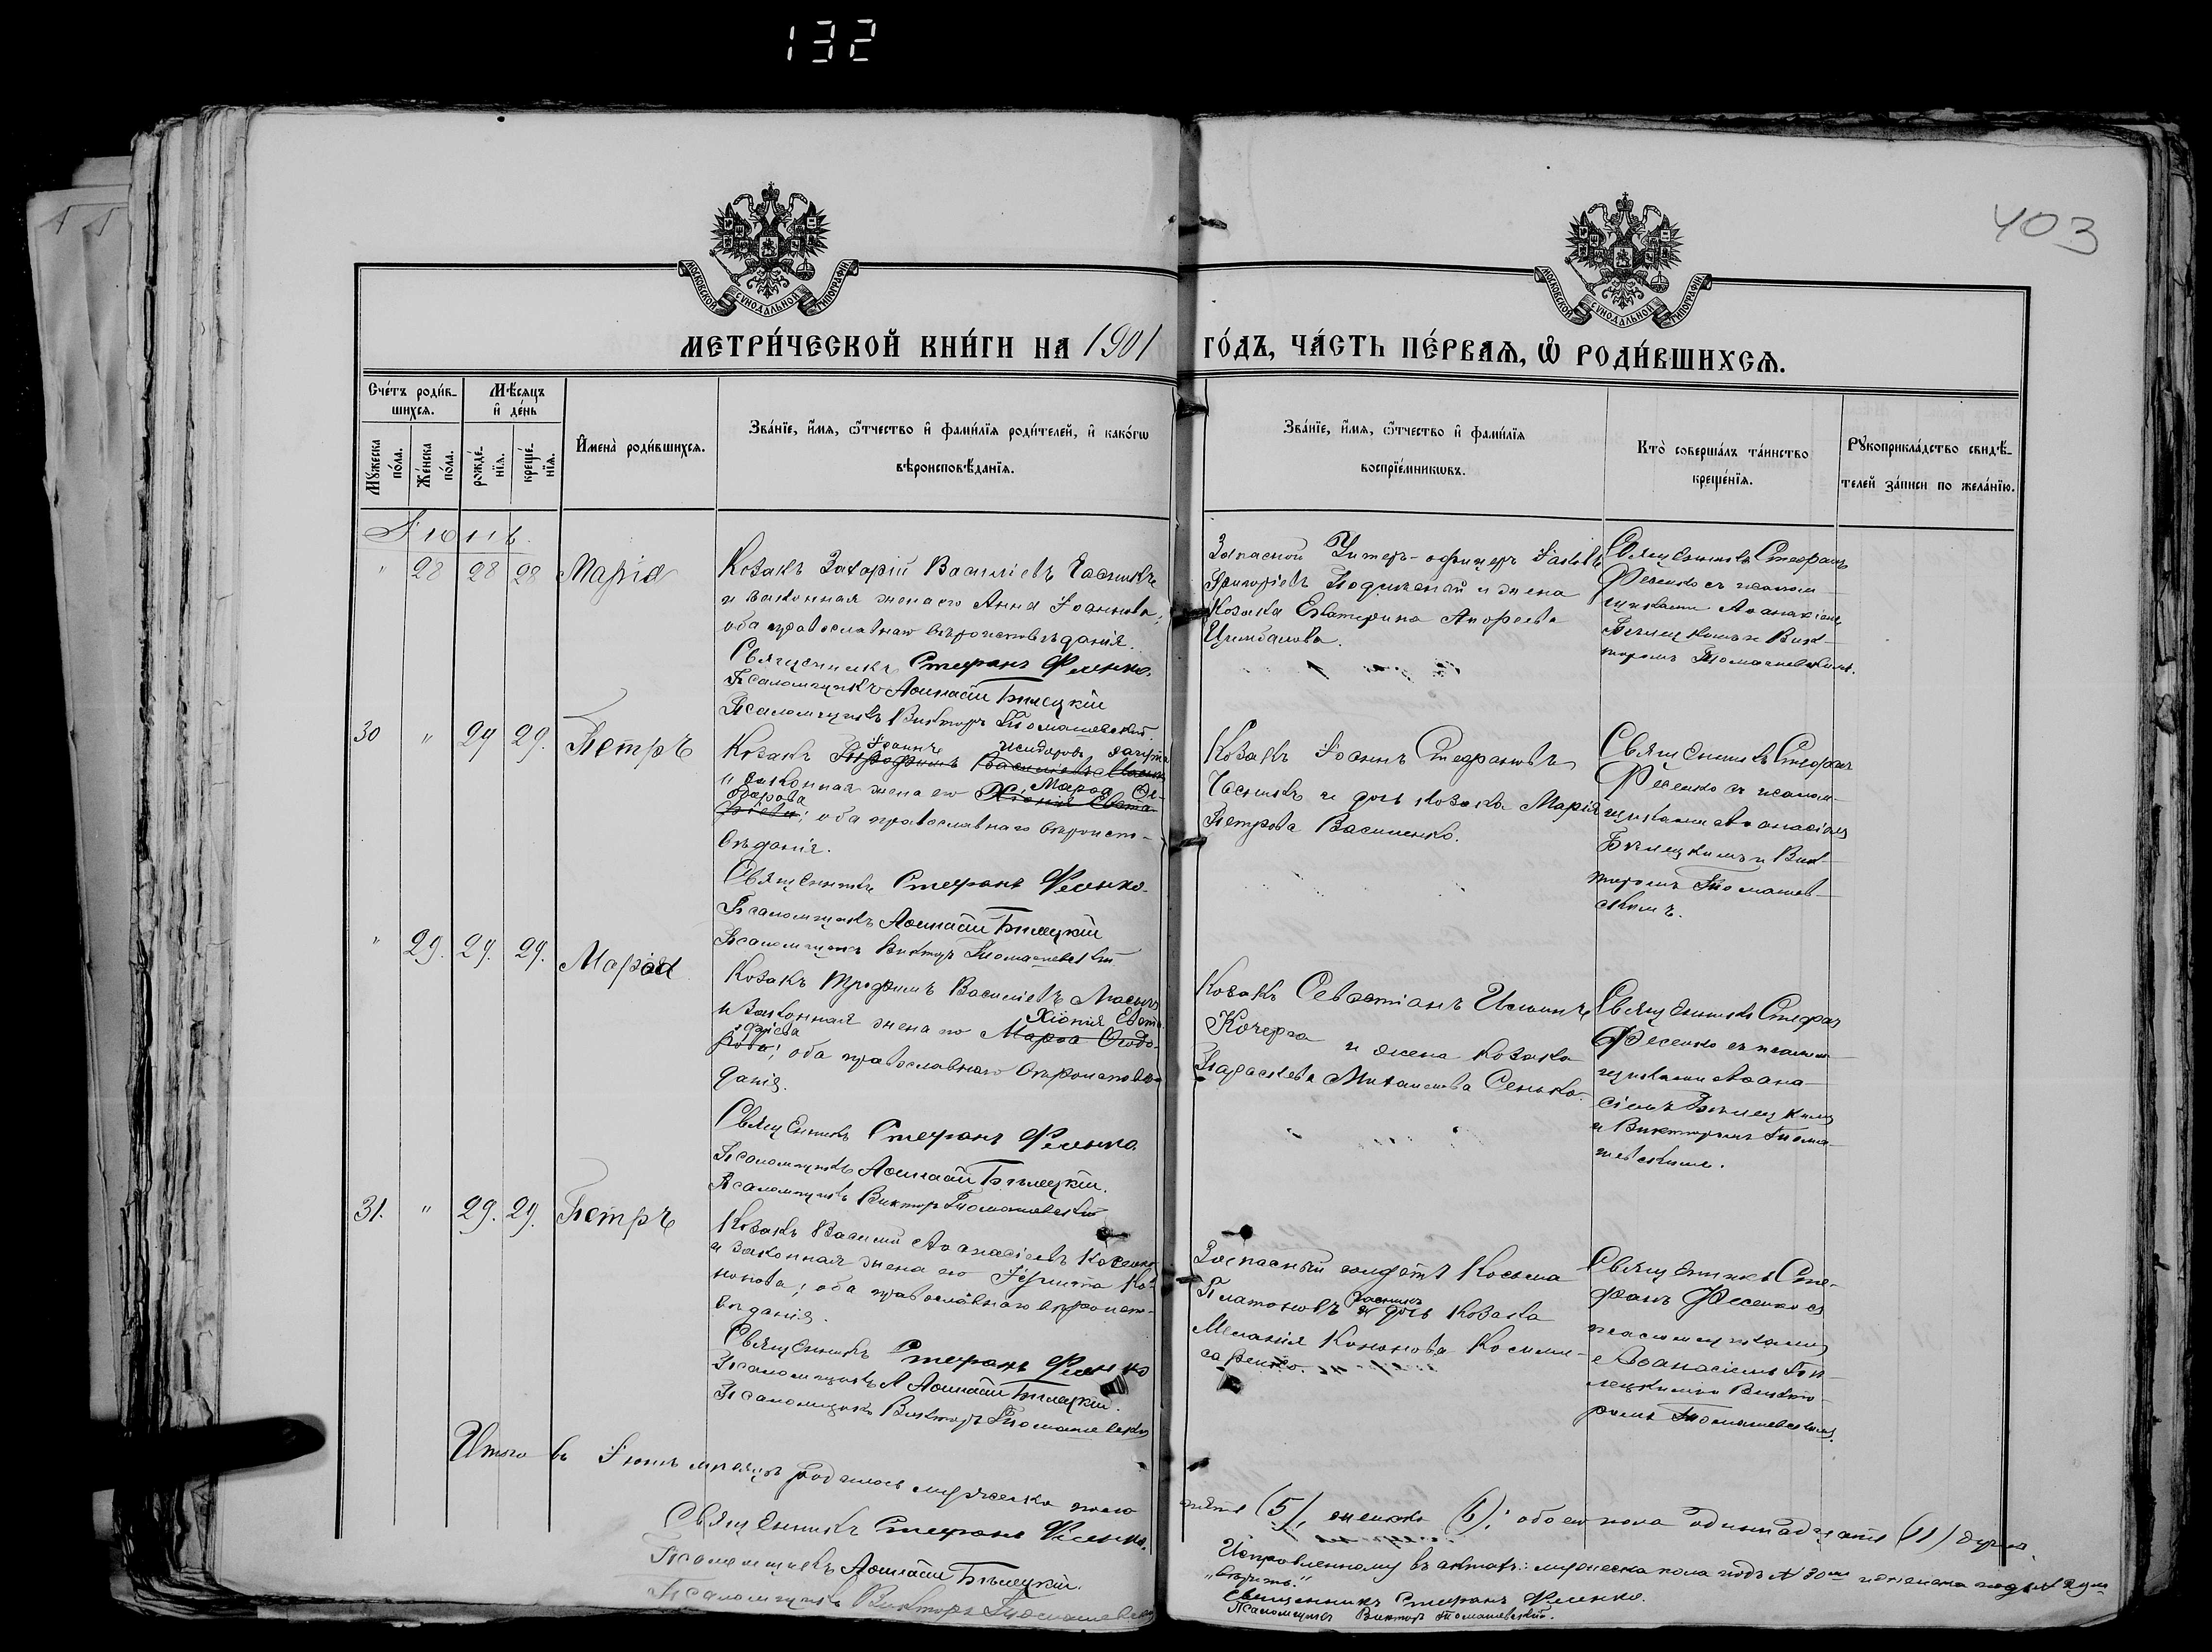 132
403
МОСКОВСКОЙ СУНОДАЛЬНОЙ ТИПОГРАФІИ
МОСКОВСКОЙ СУНОДАЛЬНОЙ ТИПОГРАФІИ
МЕТРИ́ЧЕСКОЙ КНИ́ГИ НА 1901 ГО́ДЪ, ЧА́СТЬ ПЕ́РВАѦ, Ѡ҆ РОДИ́ВШИХСѦ.
Сче́тъ роди́в-
шихсѧ.
Мѣ́сѧцъ
и҆ де́нь
Мꙋ́жеска
по́ла.
Же́нска
по́ла.
рожде́-
нїѧ.
креще́-
нїѧ.
И҆мена̀ роди́вшихсѧ.
Зва́нїе, и҆́мѧ, ѻ҆́тчество и҆ фами́лїѧ роди́телей, и҆ како́гѡ
вѣроисповѣ́данїѧ.
Зва́нїе, и҆́мѧ, ѻ҆́тчество и҆ фами́лїѧ
воспрїе́мникѡвъ.
Кто̀ соверша́лъ та́инство
креще́нїѧ.
Рꙋкоприкла́дство свидѣ́-
телей за́писи по жела́нїю.
Іюнь
" 28 28 28 Марія
Козакъ Захарій Василіевъ Часникъ
и законная жена его Анна Іоаннова;
оба православнаго вѣроисповѣданія.
Священникъ Стефанъ Фесенко.
Псаломщикъ Аѳанасій Бѣлецкій
Псаломщикъ Викторъ Томашевскій.
Запасной Унтеръ-офицеръ
Григоріевъ и жена
Козака Екатерина Андреева
Цимбалова.
Священникъ Стефанъ
Фесенко съ псалом-
щиками Аѳанасіемъ
Бѣлецкимъ и Вик-
торомъ Томашевскимъ.
30 " 29 29. Петръ
Іоаннъ Исидоровъ
Козакъ Трофимъ Василіевъ
Марѳа Ѳе-
и законная жена его Хіонія Евста-
одорова
фіева; оба православнаго вѣроиспо-
вѣданія.
Священникъ Стефанъ Фесенко.
Псаломщикъ Аѳанасій Бѣлецкій
Псаломщикъ Викторъ Томашевскій
Козакъ Іоаннъ Стефановъ
Часникъ и дочь козака Марія
Петрова Василенко.
Священникъ Стефанъ
Фесенко съ псалом-
щиками Аѳанасіемъ
Бѣлецкимъ и Вик-
торомъ Томашев-
скимъ.
" 29. 29. 29. Марія
Козакъ Трофимъ Василіевъ
Хіонія Евста-
и законная жена его Марѳа Ѳеодо-
фіева
рова; оба православнаго вѣроисповѣ-
данія.
Священникъ Стефанъ Фесенко
Псаломщикъ Аѳанасій Бѣлецкій.
Псаломщикъ Викторъ Томашевскій
Козакъ Севастіанъ
Кочерга и жена козака
Параскева Михаилова Сенько.
Священникъ Стефанъ
Фесенко съ псалом-
щиками Аѳана-
сіемъ Бѣлецкимъ
и Викторомъ Тома-
шевскимъ.
31. " 29. 29. Петръ
Козакъ Василій Аѳанасіевъ
и законная жена его Ко-
нонова; оба православнаго вѣроиспо-
вѣданія.
Священникъ Стефанъ Фесенко
Псаломщикъ Аѳанасій Бѣлецкій.
Псаломщикъ Викторъ Томашевскій
Запасный солдатъ Косьма
Часникъ
Платоновъ и дочь козака
Меланія Кононова
Священникъ Сте-
фанъ Фесенко съ
псаломщиками
Аѳанасіемъ Бѣ-
лецкимъ и Викто-
ромъ Томашевскимъ.
Итого въ Іюнѣ мѣсяцѣ родилось мужеска пола
пять (5), женска (6); обоего пола одиннадцать (11) душъ.
Священникъ Стефанъ Фесенко.
Псаломщикъ Аѳанасій Бѣлецкій.
Псаломщикъ Викторъ Томашевскій
Исправленному въ актахъ: мужеска пола подъ № 30мъ и женска подъ № 29мъ
"вѣрить."
Священникъ Стефанъ Фесенко.
Псаломщикъ Викторъ Томашевскій.